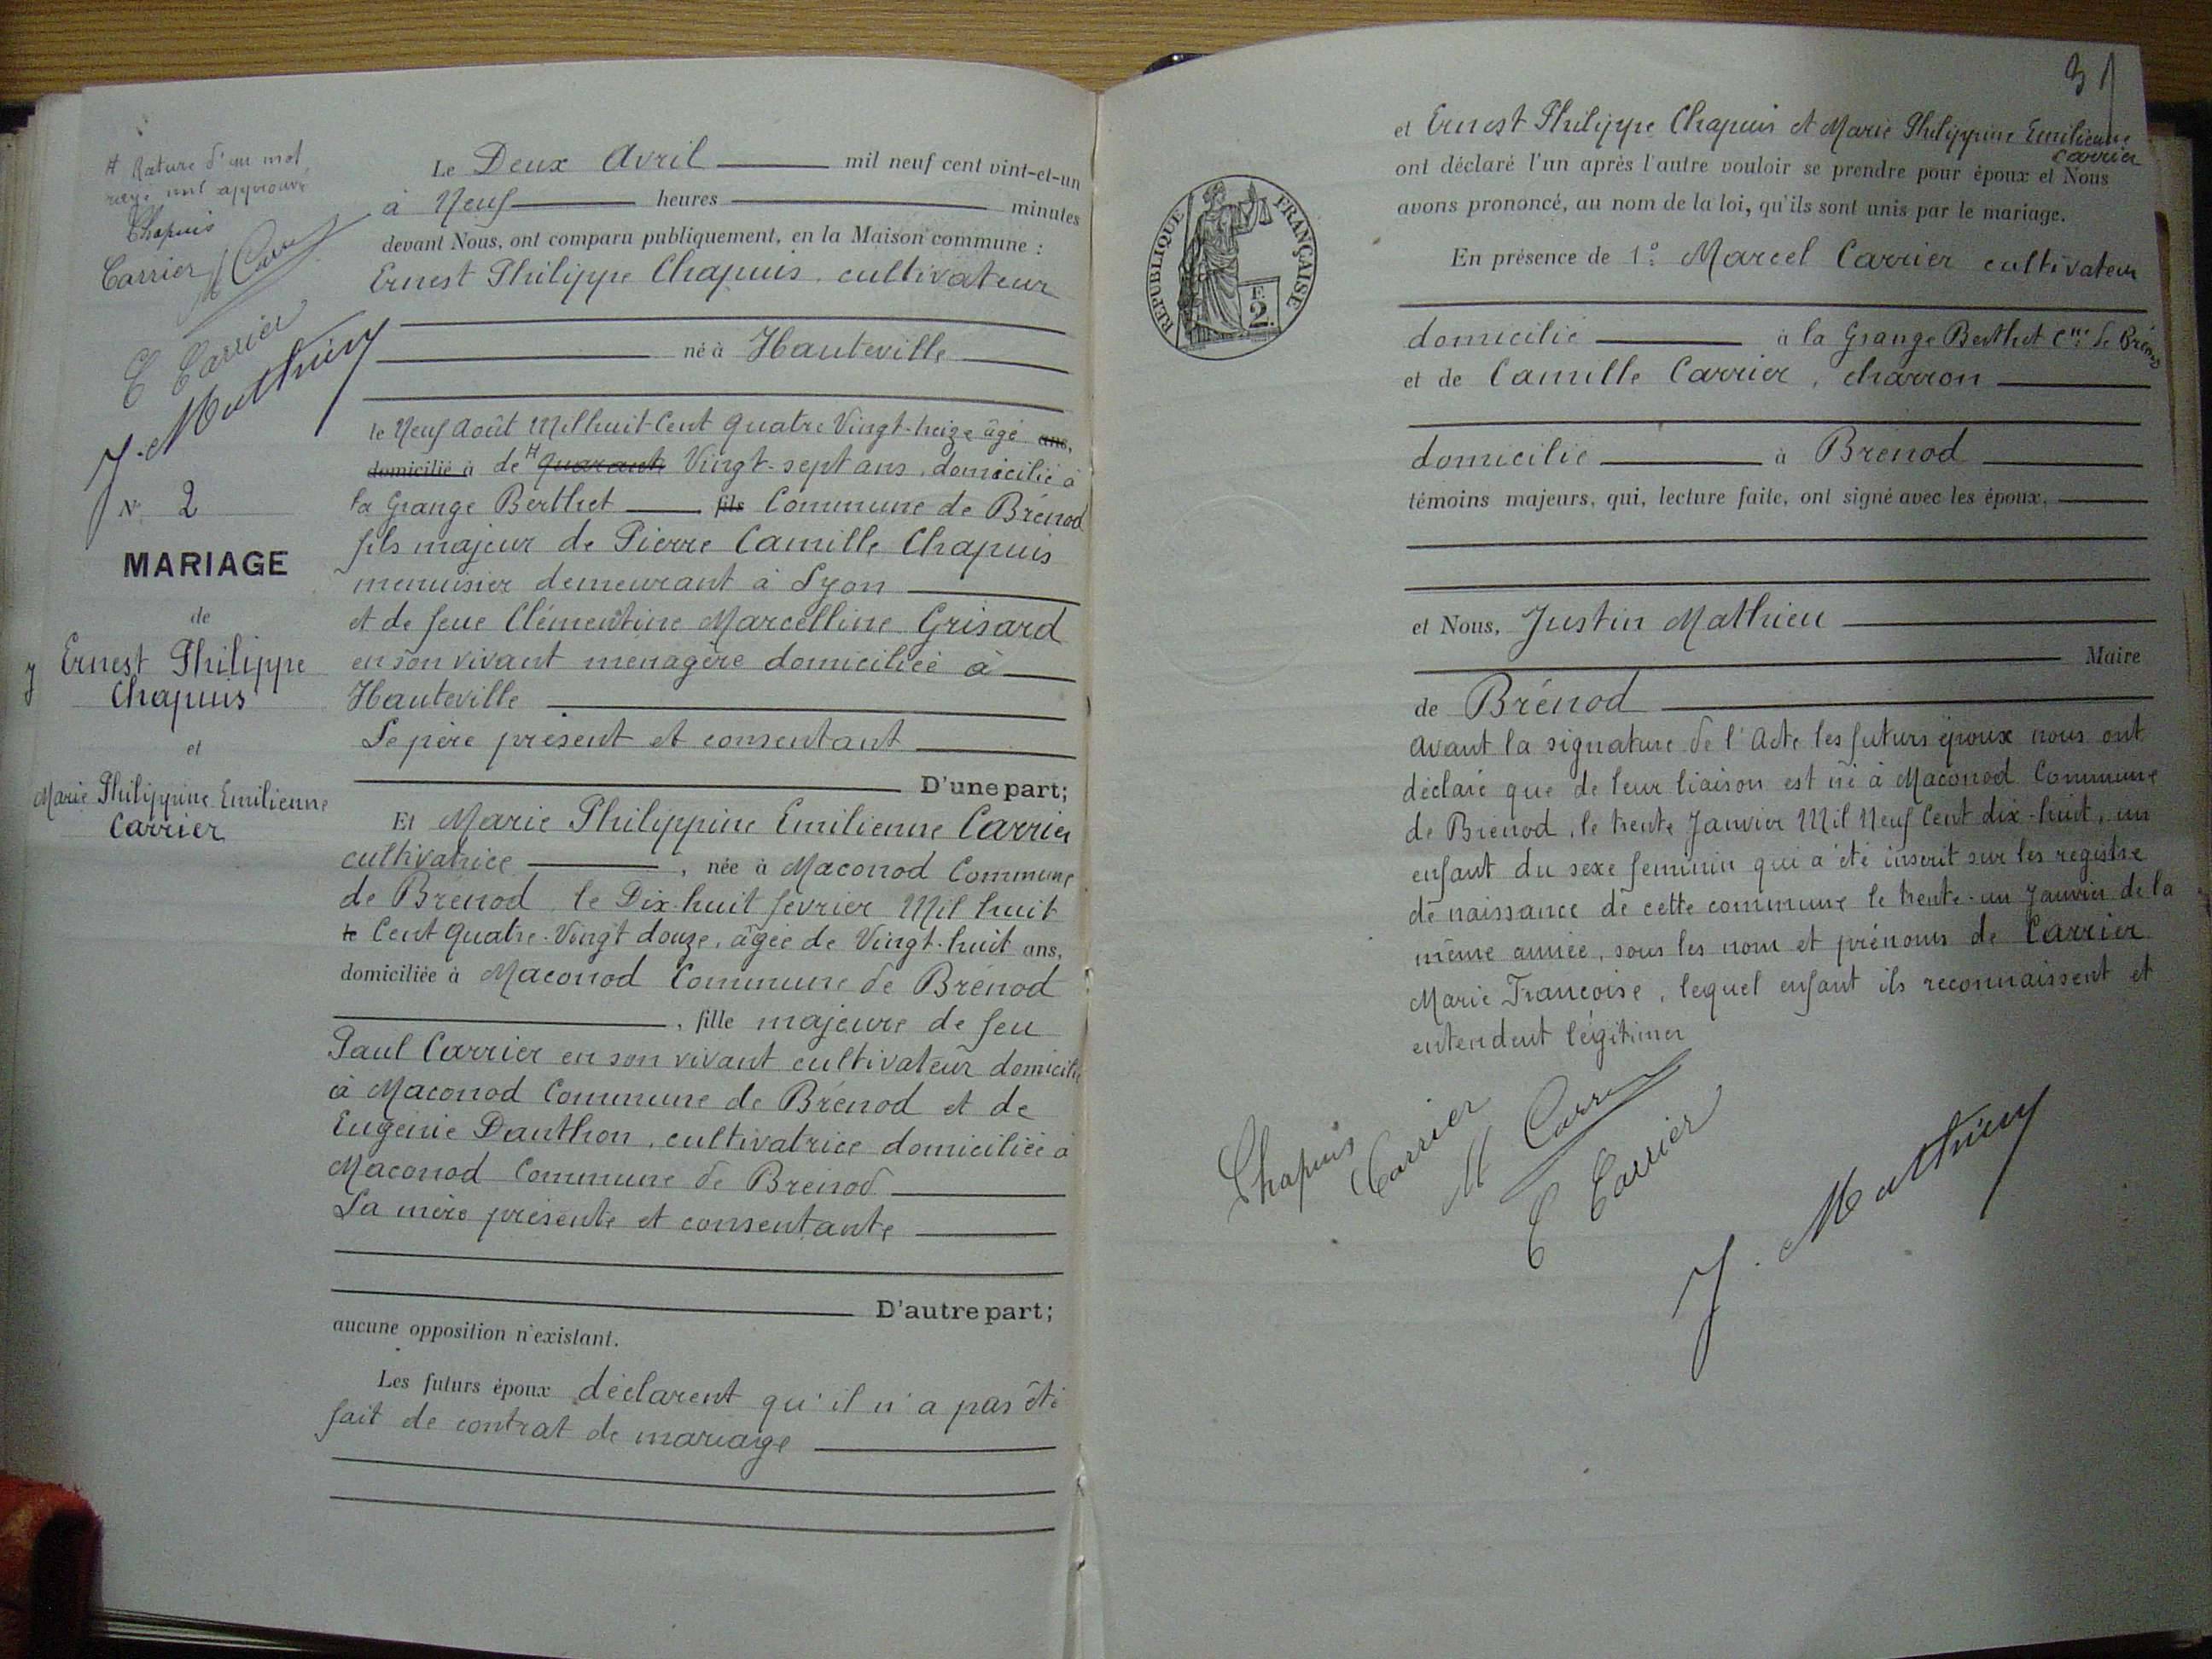 # Rature d'un mot
rayé nul approuvé
Chapuis
Carrier M Carrier
C Carrier
J. Mathieu
N° 2
MARIAGE
de
Ernest Philippe
Chapuis
et
Marie Philippine Emilienne
Carrier
Le Deux Avril mil neuf cent vint-et-un
à Neuf heures minutes
devant Nous, ont comparu publiquement, en la Maison commune :
Ernest Philippe Chapuis, cultivateur
né à Hauteville
le Neuf Août Mil huit-Cent Quatre Vingt-treize âgé ans,
domicilié à de # quarante Vingt-sept ans, domicilié à
la Grange Berthet fils Commune de Brénod
fils majeur de Pierre Camille Chapuis
menuisier demeurant à Lyon
et de feue Clémentine Marcelline Grisard
en son vivant menagère domiciliée à
Hauteville
Le père présent et consentant
D'une part;
Et Marie Philippine Emilienne Carrier
cultivatrice , née à Maconod Commune
de Brénod, le Dix-huit février Mil huit
le Cent Quatre-Vingt douze, âgée de Vingt-huit ans,
domiciliée à Maconod Commune de Brénod
, fille majeure de feu
Paul Carrier en son vivant cultivateur domicilié
à Maconod Commune de Brénod et de
Eugénie Danthon, cultivatrice domiciliée à
Maconod Commune de Brénod
La mère présente et consentante
D'autre part;
aucune opposition n'existant.
Les futurs époux déclarent qu'il n'a pas été
fait de contrat de mariage
31
REPUBLIQUE FRANÇAISE
F.
2.
et Ernest Philippe Chapuis et Marie Philippine Emilienne
Carrier
ont déclaré l'un après l'autre vouloir se prendre pour époux et Nous
avons prononcé, au nom de la loi, qu'ils sont unis par le mariage.
En présence de 1° Marcel Carrier cultivateur
domicilié à la Grange Berthet Cne de Brénod
et de Camille Carrier, charron
domicilié à Brénod
témoins majeurs, qui, lecture faite, ont signé avec les époux,
et Nous, Justin Mathieu
Maire
de Brénod
Avant la signature de l'Acte les futurs époux nous ont
déclaré que de leur liaison est né à Maconod Commune
de Brénod, le trente Janvier Mil Neuf Cent dix-huit, un
enfant du sexe feminin qui a été inscrit sur les registre
de naissance de cette commune le trente-un Janvier de la
même année, sous les nom et prénoms de Carrier
Marie Francoise, lequel enfant ils reconnaissent et
entendent légitimer
Chapuis
Carrier
M Carrier
C Carrier
J. Mathieu